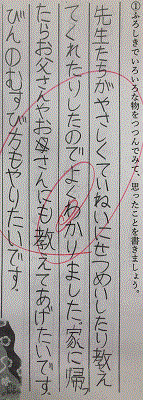 ①ふろしきでいろいろな物をつつんでみて、思ったことを書きましょう。
先生たちがやさしくていねいにせつめいしたり教え
てくれたりしたのでよくわかりました。家に帰っ
たらお父さんやお母さんにも教えてあげたいです。
びんのむすび方もやりたいです。